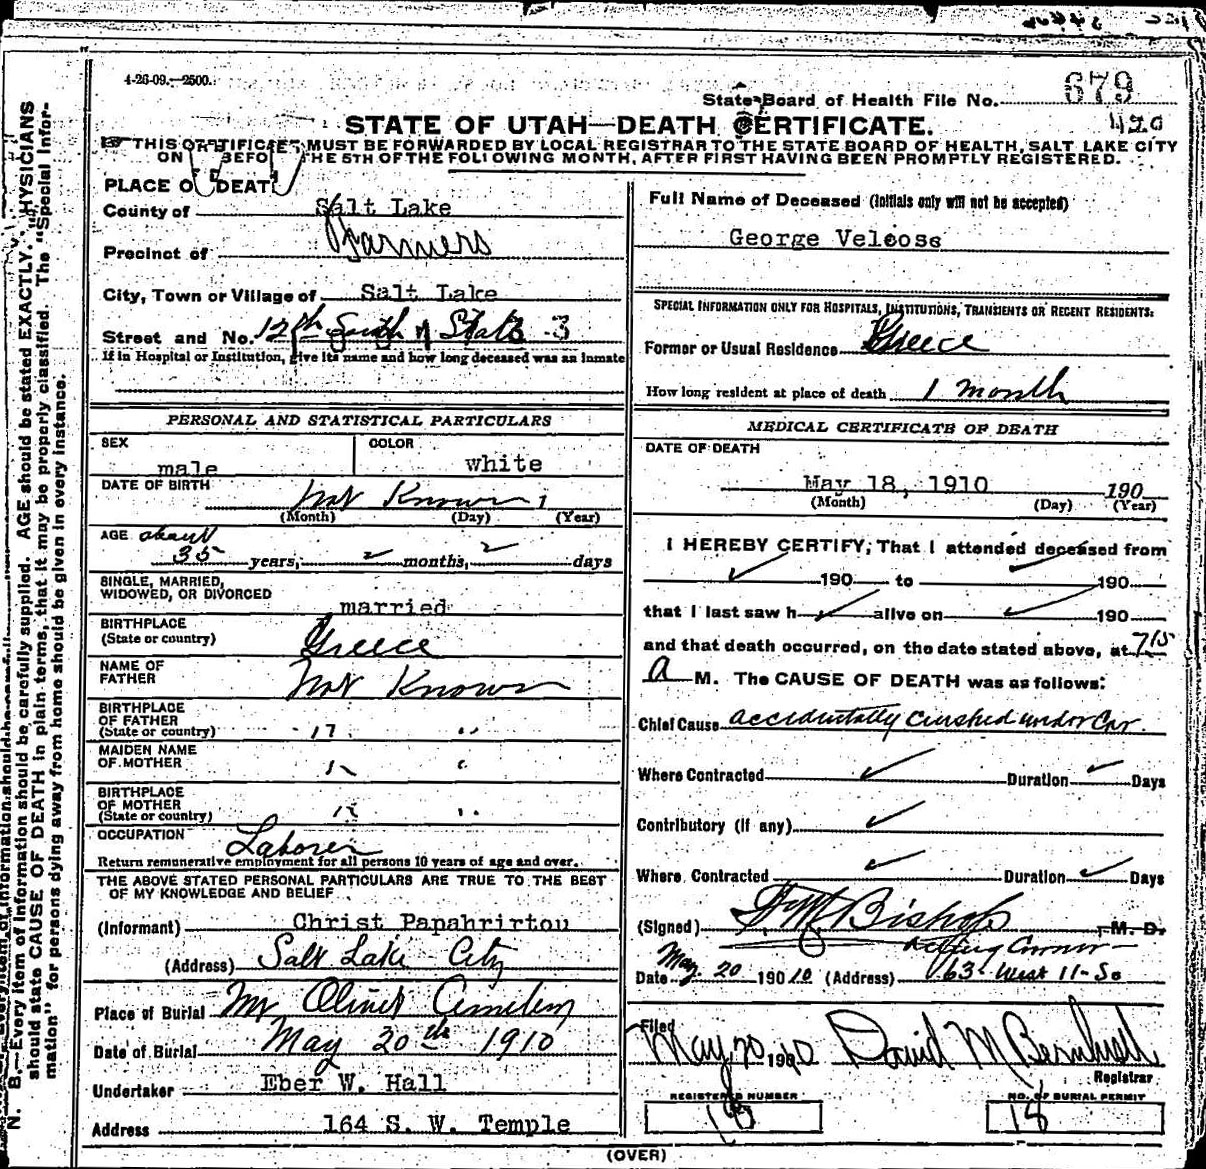 4-26-09.—2500.
State Board of Health File No. 679
STATE OF UTAH—DEATH CERTIFICATE. 420
THIS CERTIFICATE MUST BE FORWARDED BY LOCAL REGISTRAR TO THE STATE BOARD OF HEALTH, SALT LAKE CITY
ON BEFO THE 5TH OF THE FOLLOWING MONTH, AFTER FIRST HAVING BEEN PROMPTLY REGISTERED.
PLACE OF DEATH
County of Salt Lake
Precinct of Farmers
City, Town or Village of Salt Lake
Street and No. 12th South & State 3
If in Hospital or Institution, give its name and how long deceased was an inmate
PERSONAL AND STATISTICAL PARTICULARS
SEX COLOR
male white
DATE OF BIRTH
Not Known 1
(Month) (Day) (Year)
AGE about
35 years, months, days
SINGLE, MARRIED,
WIDOWED, OR DIVORCED
married
BIRTHPLACE
(State or country) Greece
NAME OF
FATHER Not Known
BIRTHPLACE
OF FATHER
(State or country) " "
MAIDEN NAME
OF MOTHER " "
BIRTHPLACE
OF MOTHER
(State or country) " "
OCCUPATION Laborer
Return remunerative employment for all persons 10 years of age and over.
THE ABOVE STATED PERSONAL PARTICULARS ARE TRUE TO THE BEST
OF MY KNOWLEDGE AND BELIEF
(Informant) Christ Papahrirtou
(Address) Salt Lake City
Place of Burial Mt Olivet Cemetery
Date of Burial May 20th 1910
Undertaker Eber W. Hall
Address 164 S. W. Temple
Full Name of Deceased (Initials only will not be accepted)
George Velcose
SPECIAL INFORMATION ONLY FOR HOSPITALS, INSTITUTIONS, TRANSIENTS OR RECENT RESIDENTS:
Former or Usual Residence Greece
How long resident at place of death 1 month
MEDICAL CERTIFICATE OF DEATH
DATE OF DEATH
May 18, 1910 190
(Month) (Day) (Year)
I HEREBY CERTIFY, That I attended deceased from
190 to 190
that I last saw h alive on 190
and that death occurred, on the date stated above, at 7 15
a M. The CAUSE OF DEATH was as follows:
Chief Cause accidentally crushed under Car
Where Contracted Duration Days
Contributory (if any)
Where Contracted Duration Days
(Signed) F.M. Bishop M. D.
Acting Coroner
Date May 20 190 10 (Address) 163 West 11-So
Filed
May 20 190 10 David M Bernhisel
Registrar
REGISTERED NUMBER NO. OF BURIAL PERMIT
18 18
(OVER)
N. B.—Every item of information should be carefully supplied. AGE should be stated EXACTLY. PHYSICIANS
should state CAUSE OF DEATH in plain terms, that it may be properly classified. The "Special Infor-
mation" for persons dying away from home should be given in every instance.